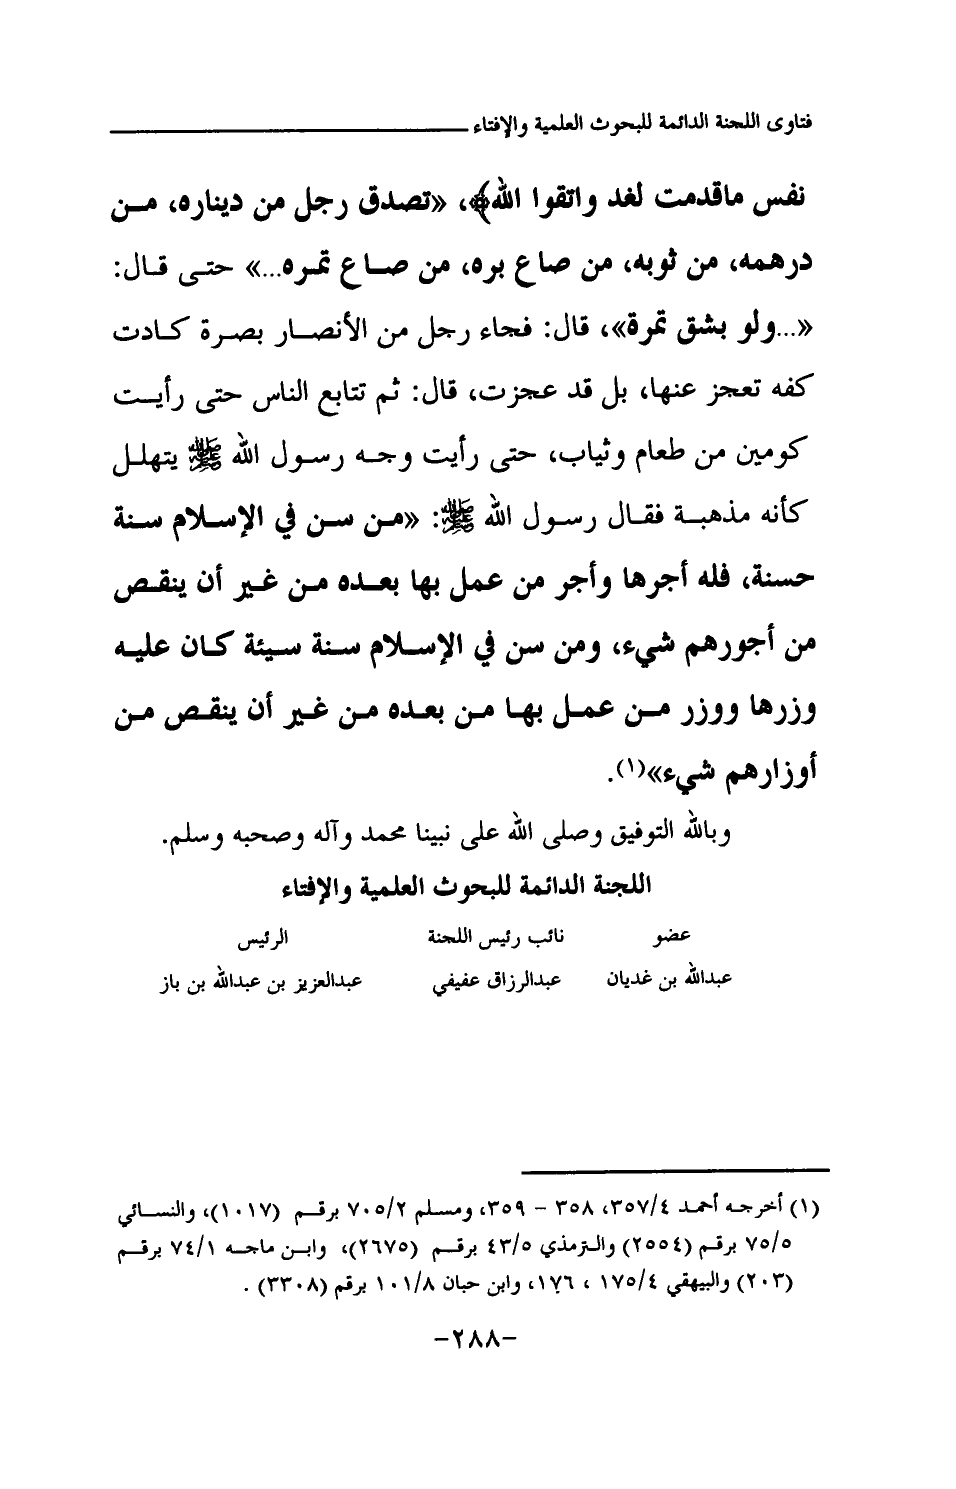 فتاوى اللجنة الدائمة للبحوث العلمية والإفتاء
نفس ماقدمت لغد واتقوا الله﴾، «تصدق رجل من ديناره، من
درهمه، من ثوبه، من صاع بره، من صاع تمره...» حتى قال:
«...ولو بشق تمرة»، قال: فجاء رجل من الأنصار بصرة كادت
كفه تعجز عنها، بل قد عجزت، قال: ثم تتابع الناس حتى رأيت
كومين من طعام وثياب، حتى رأيت وجه رسول الله ﷺ يتهلل
كأنه مذهبة فقال رسول الله ﷺ: «من سن في الإسلام سنة
حسنة، فله أجرها وأجر من عمل بها بعده من غير أن ينقص
من أجورهم شيء، ومن سن في الإسلام سنة سيئة كان عليه
وزرها ووزر من عمل بها من بعده من غير أن ينقص من
أوزارهم شيء»(١).
وبالله التوفيق وصلى الله على نبينا محمد وآله وصحبه وسلم.
اللجنة الدائمة للبحوث العلمية والإفتاء
عضو نائب رئيس اللجنة الرئيس
عبدالله بن غديان عبدالرزاق عفيفي عبدالعزيز بن عبدالله بن باز
(١) أخرجه أحمد ٣٥٧/٤، ٣٥٨ - ٣٥٩، ومسلم ٧٠٥/٢ برقم (١٠١٧)، والنسائي
٧٥/٥ برقم (٢٥٥٤) والترمذي ٤٣/٥ برقم (٢٦٧٥)، وابن ماجه ٧٤/١ برقم
(٢٠٣) والبيهقي ١٧٥/٤ ، ١٧٦، وابن حبان ١٠١/٨ برقم (٣٣٠٨) .
-٢٨٨-